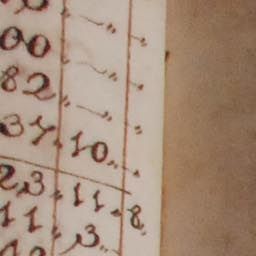 00 " — " "
82 " — " "
37 . 10 . "
23 . 11 . 8 "
11 . 3 "